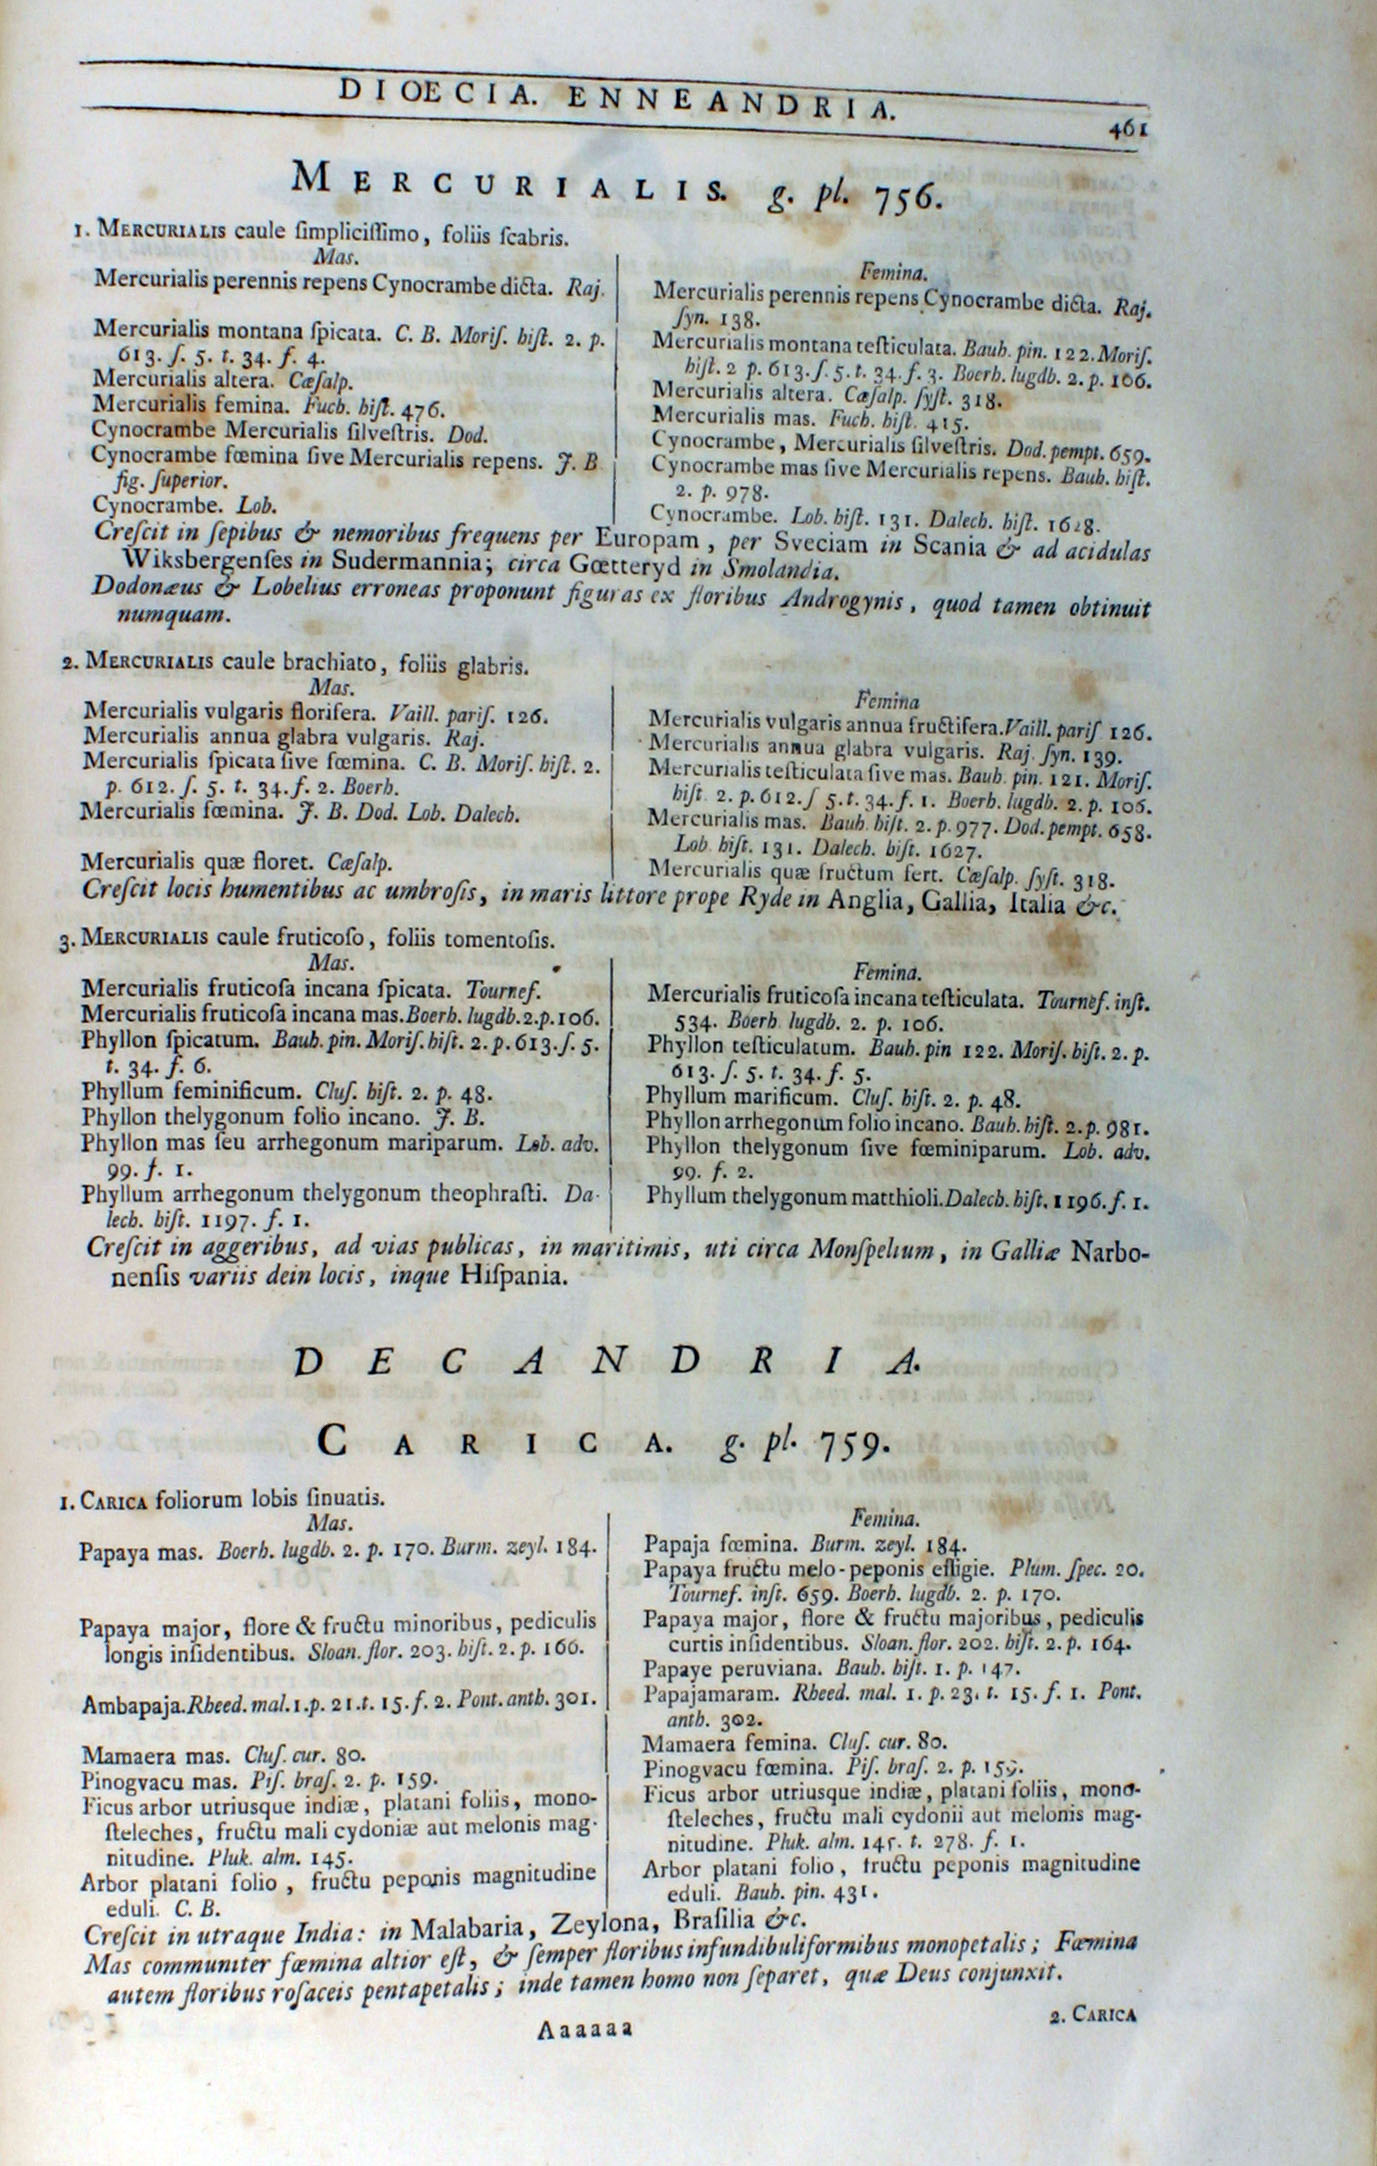 DIOECIA. ENNEANDRIA.
461
MERCURIALIS. g. pl. 756.
1. MERCURIALIS caule ſimpliciſſimo, foliis ſcabris.
Mas.
Mercurialis perennis repens Cynocrambe dicta. Raj.
Mercurialis montana ſpicata. C. B. Moriſ. hiſt. 2. p.
613. ſ. 5. t. 34. f. 4.
Mercurialis altera. Cæſalp.
Mercurialis femina. Fuch. hiſt. 476.
Cynocrambe Mercurialis ſilveſtris. Dod.
Cynocrambe fœmina ſive Mercurialis repens. J. B
fig. ſuperior.
Cynocrambe. Lob.
Femina.
Mercurialis perennis repens Cynocrambe dicta. Raj.
ſyn. 138.
Mercurialis montana teſticulata. Bauh. pin. 122. Moriſ.
hiſt. 2 p. 613. ſ. 5. t. 34. f. 3. Boerh. lugdb. 2. p. 106.
Mercurialis altera. Cæſalp. ſyſt. 318.
Mercurialis mas. Fuch. hiſt. 415.
Cynocrambe, Mercurialis ſilveſtris. Dod. pempt. 659.
Cynocrambe mas ſive Mercurialis repens. Bauh. hiſt.
2. p. 978.
Cynocrambe. Lob. hiſt. 131. Dalech. hiſt. 1628.
Creſcit in ſepibus & nemoribus frequens per Europam, per Sveciam in Scania & ad acidulas
Wiksbergenſes in Sudermannia; circa Gœtteryd in Smolandia.
Dodonæus & Lobelius erroneas proponunt figuras ex floribus Androgynis, quod tamen obtinuit
numquam.
2. MERCURIALIS caule brachiato, foliis glabris.
Mas.
Mercurialis vulgaris florifera. Vaill. pariſ. 126.
Mercurialis annua glabra vulgaris. Raj.
Mercurialis ſpicata ſive fœmina. C. B. Moriſ. hiſt. 2.
p. 612. ſ. 5. t. 34. f. 2. Boerh.
Mercurialis fœmina. J. B. Dod. Lob. Dalech.
Mercurialis quæ floret. Cæſalp.
Femina
Mercurialis vulgaris annua fructifera. Vaill. pariſ 126.
Mercurialis annua glabra vulgaris. Raj. ſyn. 139.
Mercurialis teſticulata ſive mas. Bauh. pin. 121. Moriſ.
hiſt 2. p. 612. ſ 5. t. 34. f. 1. Boerh. lugdb. 2. p. 106.
Mercurialis mas. Bauh. hiſt. 2. p. 977. Dod. pempt. 658.
Lob. hiſt. 131. Dalech. hiſt. 1627.
Mercurialis quæ fructum fert. Cæſalp. ſyſt. 318.
Creſcit locis humentibus ac umbroſis, in maris littore prope Ryde in Anglia, Gallia, Italia &c.
3. MERCURIALIS caule fruticoſo, foliis tomentoſis.
Mas.
Mercurialis fruticoſa incana ſpicata. Tournef.
Mercurialis fruticoſa incana mas. Boerh. lugdb. 2. p. 106.
Phyllon ſpicatum. Bauh. pin. Moriſ. hiſt. 2. p. 613. ſ. 5.
t. 34. f. 6.
Phyllum feminificum. Cluſ. hiſt. 2. p. 48.
Phyllon thelygonum folio incano. J. B.
Phyllon mas ſeu arrhegonum mariparum. Lob. adv.
99. f. 1.
Phyllum arrhegonum thelygonum theophraſti. Da-
lech. hiſt. 1197. f. 1.
Femina.
Mercurialis fruticoſa incana teſticulata. Tournef. inſt.
534. Boerh. lugdb. 2. p. 106.
Phyllon teſticulatum. Bauh. pin 122. Moriſ. hiſt. 2. p.
613. ſ. 5. t. 34. f. 5.
Phyllum marificum. Cluſ. hiſt. 2. p. 48.
Phyllon arrhegonum folio incano. Bauh. hiſt. 2. p. 981.
Phyllon thelygonum ſive fœminiparum. Lob. adv.
99. f. 2.
Phyllum thelygonum matthioli. Dalech. hiſt. 1196. f. 1.
Creſcit in aggeribus, ad vias publicas, in maritimis, uti circa Monſpelium, in Galliæ Narbo-
nenſis variis dein locis, inque Hiſpania.
DECANDRIA.
CARICA. g. pl. 759.
1. CARICA foliorum lobis ſinuatis.
Mas.
Papaya mas. Boerh. lugdb. 2. p. 170. Burm. zeyl. 184.
Papaya major, flore & fructu minoribus, pediculis
longis inſidentibus. Sloan. flor. 203. hiſt. 2. p. 166.
Ambapaja. Rheed. mal. 1. p. 21. t. 15. f. 2. Pont. anth. 301.
Mamaera mas. Cluſ. cur. 80.
Pinogvacu mas. Piſ. braſ. 2. p. 159.
Ficus arbor utriusque indiæ, platani foliis, mono-
ſteleches, fructu mali cydoniæ aut melonis mag-
nitudine. Pluk. alm. 145.
Arbor platani folio, fructu peponis magnitudine
eduli. C. B.
Femina.
Papaja fœmina. Burm. zeyl. 184.
Papaya fructu melo-peponis effigie. Plum. ſpec. 20.
Tournef. inſt. 659. Boerh. lugdb. 2. p. 170.
Papaya major, flore & fructu majoribus, pediculis
curtis inſidentibus. Sloan. flor. 202. hiſt. 2. p. 164.
Papaye peruviana. Bauh. hiſt. 1. p. 147.
Papajamaram. Rheed. mal. 1. p. 23. t. 15. f. 1. Pont.
anth. 302.
Mamaera femina. Cluſ. cur. 80.
Pinogvacu fœmina. Piſ. braſ. 2. p. 159.
Ficus arbor utriusque indiæ, platani foliis, mono-
ſteleches, fructu mali cydonii aut melonis mag-
nitudine. Pluk. alm. 145. t. 278. f. 1.
Arbor platani folio, fructu peponis magnitudine
eduli. Bauh. pin. 431.
Creſcit in utraque India: in Malabaria, Zeylona, Braſilia &c.
Mas communiter fœmina altior eſt, & ſemper floribus infundibuliformibus monopetalis; Fœmina
autem floribus roſaceis pentapetalis; inde tamen homo non ſeparet, quæ Deus conjunxit.
Aaaaaa
2. CARICA